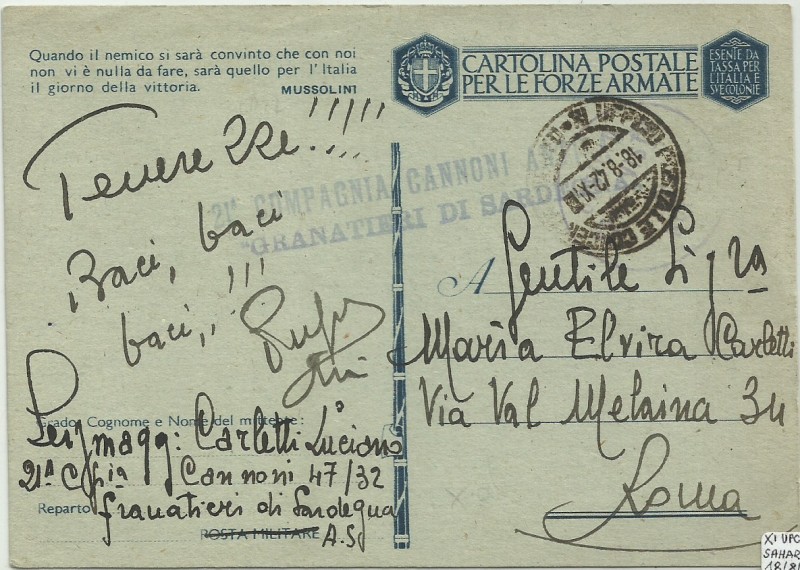 Quando il nemico si sarà convinto che con noi
non vi è nulla da fare, sarà quello per l'Italia
il giorno della vittoria. MUSSOLINI
CARTOLINA POSTALE
PER LE FORZE ARMATE
ESENTE DA
TASSA PER
L'ITALIA E
SVE COLONIE
Tenerezze!!!!!
Baci, baci
baci,!!!
21ª COMPAGNIA CANNONI
"GRANATIERI DI SARDEGNA"
UFFICIO POSTALE
18.8.42-XX
A Gentile Sig.ra
Maria Elvira Carletti
Via Val Melaina 34
Roma
Grado, Cognome e Nome del mittente:
Serg. magg: Carletti Luciano
21ª C/pia Cannoni 47/32
Reparto Granatieri di Sardegna
POSTA MILITARE A.S.
XI UPC
SAHAR
18/8/